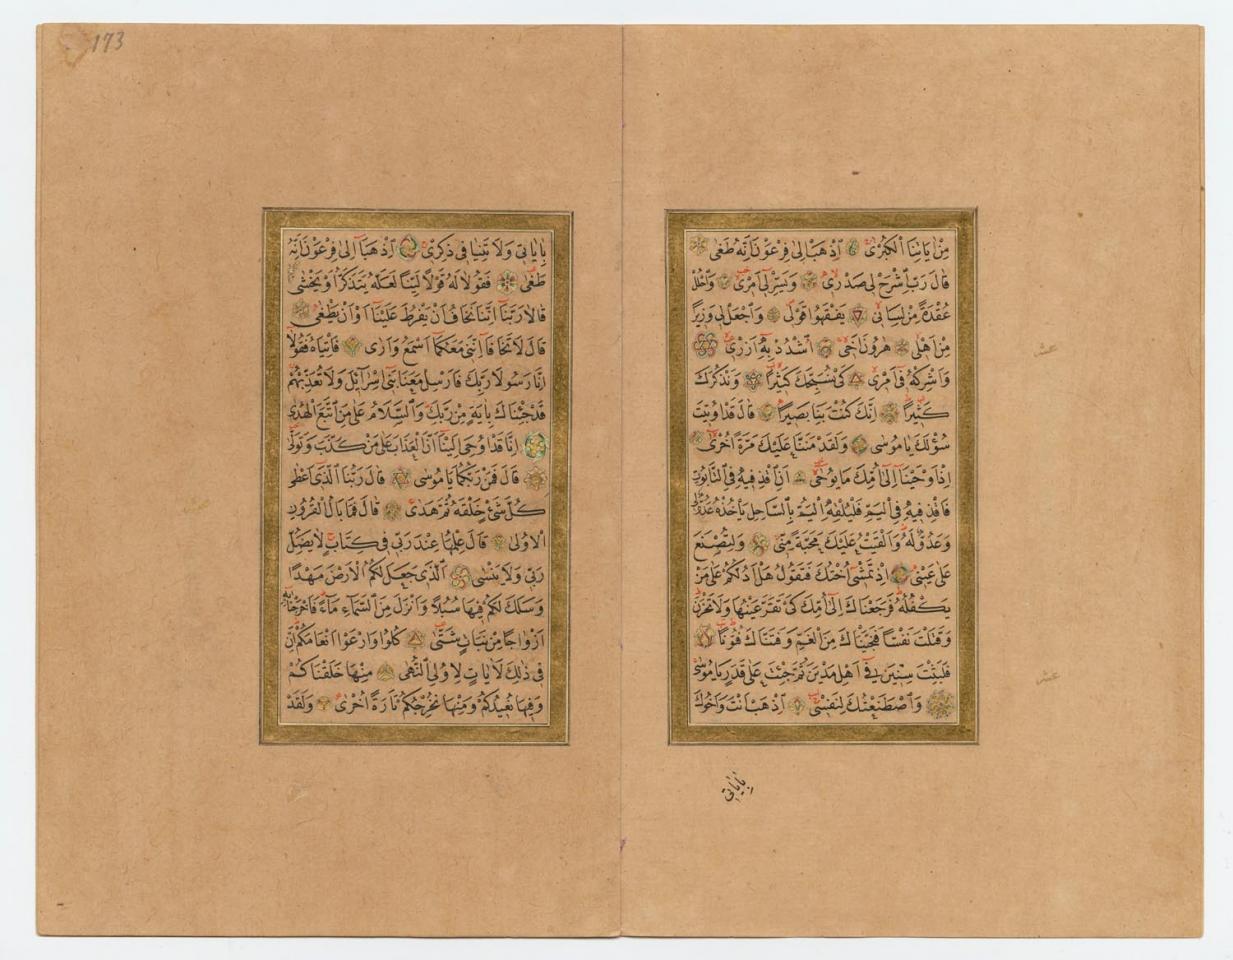 مِنْ اٰيَاتِنَا الْكُبْرٰى اِذْهَبْ اِلٰى فِرْعَوْنَ اِنَّهُ طَغٰى
قَالَ رَبِّ اشْرَحْ لِى صَدْرِى وَيَسِّرْ لِى اَمْرِى وَاحْلُلْ
عُقْدَةً مِنْ لِسَانِى يَفْقَهُوا قَوْلِى وَاجْعَلْ لِى وَزِيرًا
مِنْ اَهْلِى هٰرُونَ اَخِى اُشْدُدْ بِهِ اَزْرِى
وَاَشْرِكْهُ فِى اَمْرِى كَىْ نُسَبِّحَكَ كَثِيرًا وَنَذْكُرَكَ
كَثِيرًا اِنَّكَ كُنْتَ بِنَا بَصِيرًا قَالَ قَدْ اُوتِيتَ
سُؤْلَكَ يَا مُوسٰى وَلَقَدْ مَنَنَّا عَلَيْكَ مَرَّةً اُخْرٰى
اِذْ اَوْحَيْنَا اِلٰى اُمِّكَ مَا يُوحٰى اَنِ اقْذِفِيهِ فِى التَّابُوتِ
فَاقْذِفِيهِ فِى الْيَمِّ فَلْيُلْقِهِ الْيَمُّ بِالسَّاحِلِ يَأْخُذْهُ عَدُوٌّ لِى
وَعَدُوٌّ لَهُ وَاَلْقَيْتُ عَلَيْكَ مَحَبَّةً مِنِّى وَلِتُصْنَعَ
عَلٰى عَيْنِى اِذْ تَمْشِى اُخْتُكَ فَتَقُولُ هَلْ اَدُلُّكُمْ عَلٰى مَنْ
يَكْفُلُهُ فَرَجَعْنَاكَ اِلٰى اُمِّكَ كَىْ تَقَرَّ عَيْنُهَا وَلَا تَحْزَنَ
وَقَتَلْتَ نَفْسًا فَنَجَّيْنَاكَ مِنَ الْغَمِّ وَفَتَنَّاكَ فُتُونًا
فَلَبِثْتَ سِنِينَ فِى اَهْلِ مَدْيَنَ ثُمَّ جِئْتَ عَلٰى قَدَرٍ يَا مُوسٰى
وَاصْطَنَعْتُكَ لِنَفْسِى اِذْهَبْ اَنْتَ وَاَخُوكَ
بِاٰيَاتِى
عشر
عشر
173
بِاٰيَاتِى وَلَا تَنِيَا فِى ذِكْرِى اِذْهَبَا اِلٰى فِرْعَوْنَ اِنَّهُ
طَغٰى فَقُولَا لَهُ قَوْلًا لَيِّنًا لَعَلَّهُ يَتَذَكَّرُ اَوْ يَخْشٰى
قَالَا رَبَّنَا اِنَّنَا نَخَافُ اَنْ يَفْرُطَ عَلَيْنَا اَوْ اَنْ يَطْغٰى
قَالَ لَا تَخَافَا اِنَّنِى مَعَكُمَا اَسْمَعُ وَاَرٰى فَاْتِيَاهُ فَقُولَا
اِنَّا رَسُولَا رَبِّكَ فَاَرْسِلْ مَعَنَا بَنِى اِسْرَآئِيلَ وَلَا تُعَذِّبْهُمْ
قَدْ جِئْنَاكَ بِاٰيَةٍ مِنْ رَبِّكَ وَالسَّلَامُ عَلٰى مَنِ اتَّبَعَ الْهُدٰى
اِنَّا قَدْ اُوحِىَ اِلَيْنَا اَنَّ الْعَذَابَ عَلٰى مَنْ كَذَّبَ وَتَوَلّٰى
قَالَ فَمَنْ رَبُّكُمَا يَا مُوسٰى قَالَ رَبُّنَا الَّذِى اَعْطٰى
كُلَّ شَىْءٍ خَلْقَهُ ثُمَّ هَدٰى قَالَ فَمَا بَالُ الْقُرُونِ
الْاُولٰى قَالَ عِلْمُهَا عِنْدَ رَبِّى فِى كِتَابٍ لَا يَضِلُّ
رَبِّى وَلَا يَنْسٰى اَلَّذِى جَعَلَ لَكُمُ الْاَرْضَ مَهْدًا
وَسَلَكَ لَكُمْ فِيهَا سُبُلًا وَاَنْزَلَ مِنَ السَّمَآءِ مَآءً فَاَخْرَجْنَا بِهِ
اَزْوَاجًا مِنْ نَبَاتٍ شَتّٰى كُلُوا وَارْعَوْا اَنْعَامَكُمْ اِنَّ
فِى ذٰلِكَ لَاٰيَاتٍ لِاُولِى النُّهٰى مِنْهَا خَلَقْنَاكُمْ
وَفِيهَا نُعِيدُكُمْ وَمِنْهَا نُخْرِجُكُمْ تَارَةً اُخْرٰى وَلَقَدْ